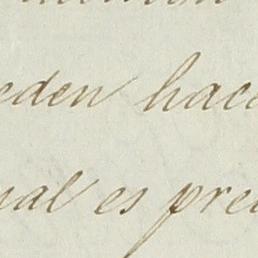 eden hac
ual es pre